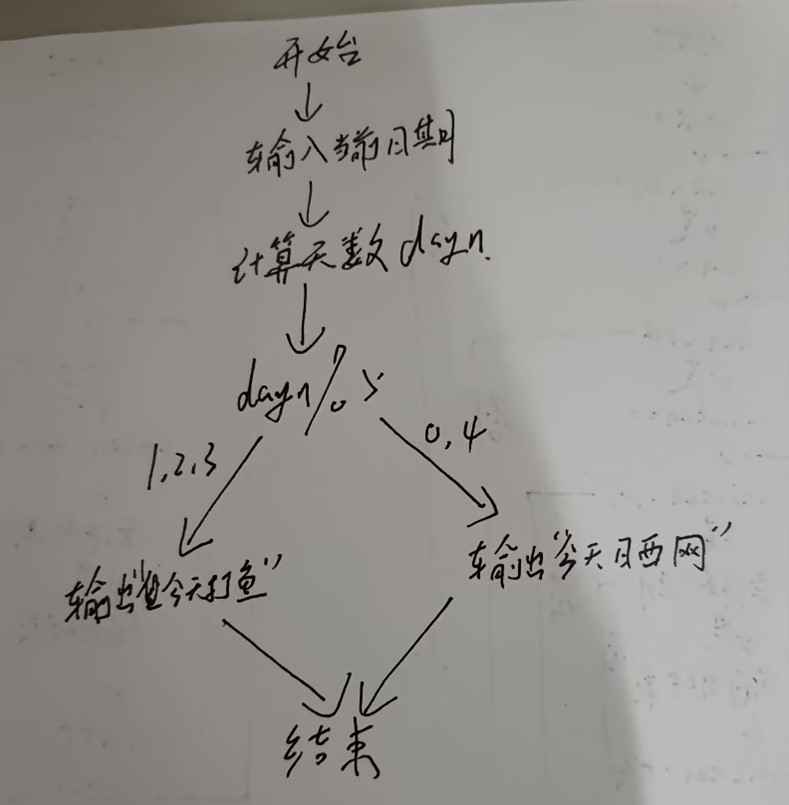 开始
输入当前日期
计算天数 dayn.
dayn%5
1,2,3
0,4
输出“今天打鱼”
输出“今天晒网”
结束